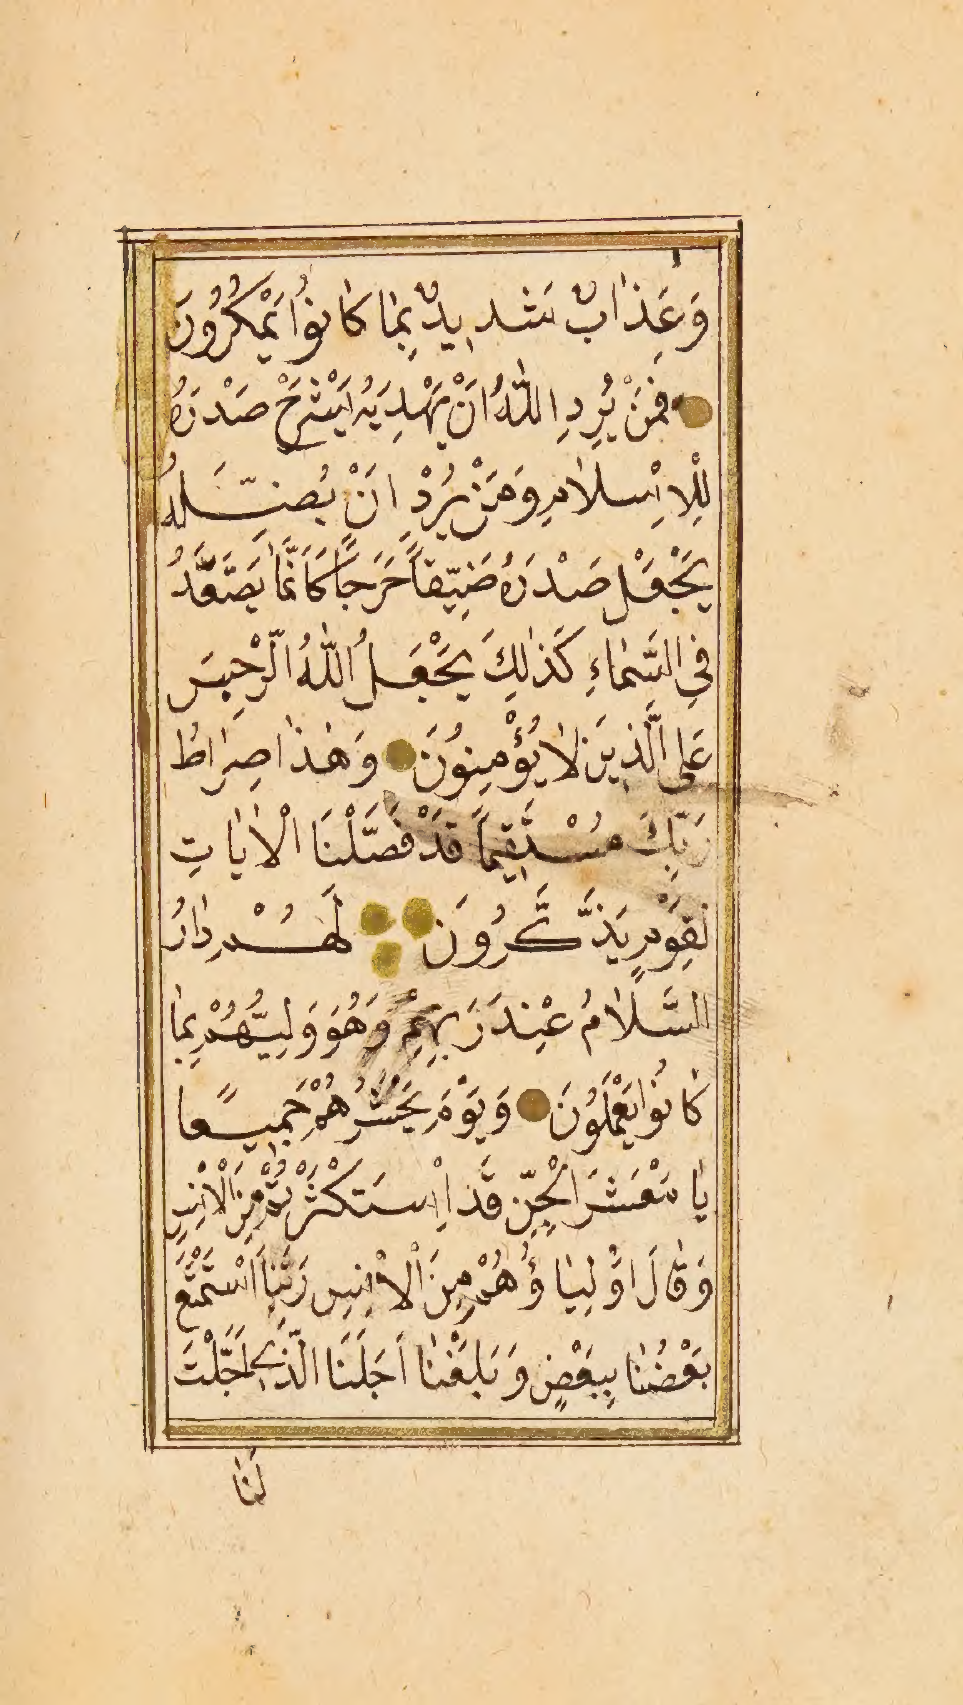 وَعَذَابٌ شَدِيدٌ بِمَا كَانُوا يَمْكُرُونَ
فَمَنْ يُرِدِ اللّٰهُ اَنْ يَهْدِيَهُ يَشْرَحْ صَدْرَهُ
لِلْاِسْلَامِ وَمَنْ يُرِدْ اَنْ يُضِلَّهُ
يَجْعَلْ صَدْرَهُ ضَيِّقاً حَرَجاً كَاَنَّمَا يَصَّعَّدُ
فِي السَّمَاءِ كَذٰلِكَ يَجْعَلُ اللّٰهُ الرِّجْسَ
عَلَى الَّذِينَ لَا يُؤْمِنُونَ وَهٰذَا صِرَاطُ
رَبِّكَ مُسْتَقِيماً قَدْ فَصَّلْنَا الْاٰيَاتِ
لِقَوْمٍ يَذَّكَّرُونَ لَهُمْ دَارُ
السَّلَامِ عِنْدَ رَبِّهِمْ وَهُوَ وَلِيُّهُمْ بِمَا
كَانُوا يَعْمَلُونَ وَيَوْمَ يَحْشُرُهُمْ جَمِيعًا
يَا مَعْشَرَ الْجِنِّ قَدِ اسْتَكْثَرْتُمْ مِنَ الْاِنْسِ
وَقَالَ اَوْلِيَاؤُهُمْ مِنَ الْاِنْسِ رَبَّنَا اسْتَمْتَعَ
بَعْضُنَا بِبَعْضٍ وَبَلَغْنَا اَجَلَنَا الَّذِي اَجَّلْتَ
لَنَا